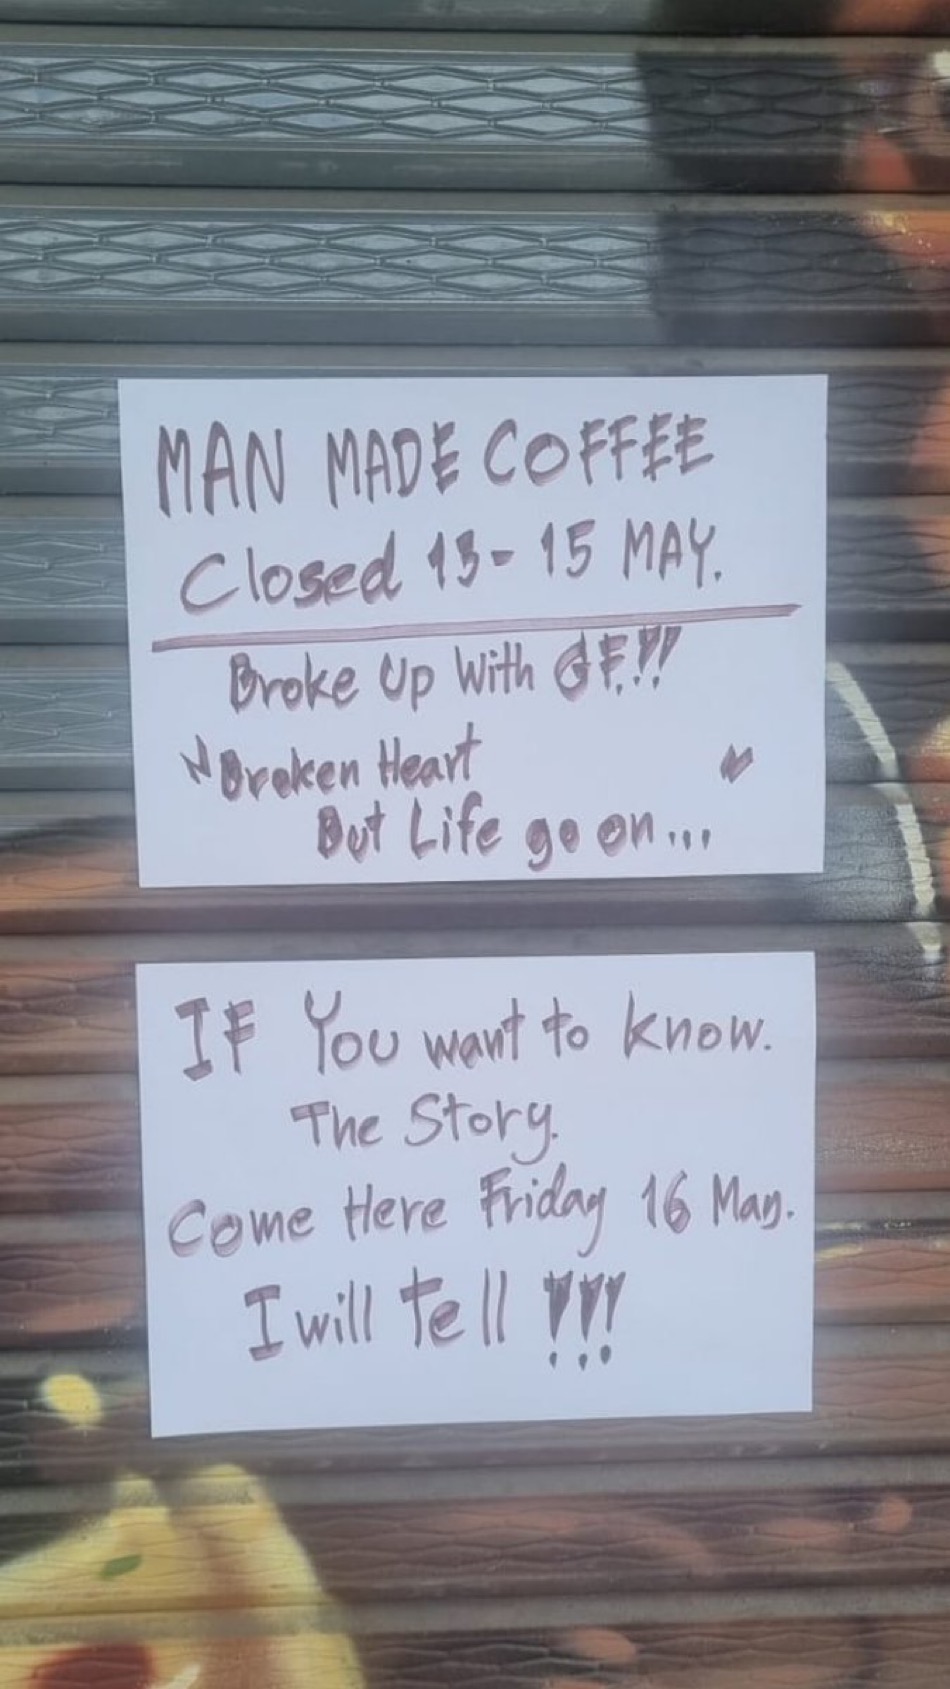 MAN MADE COFFEE
Closed 13-15 MAY.
Broke Up With GF!!!
"Broken Heart "
But Life go on...
IF You want to know.
The Story.
Come Here Friday 16 May.
I will tell !!!